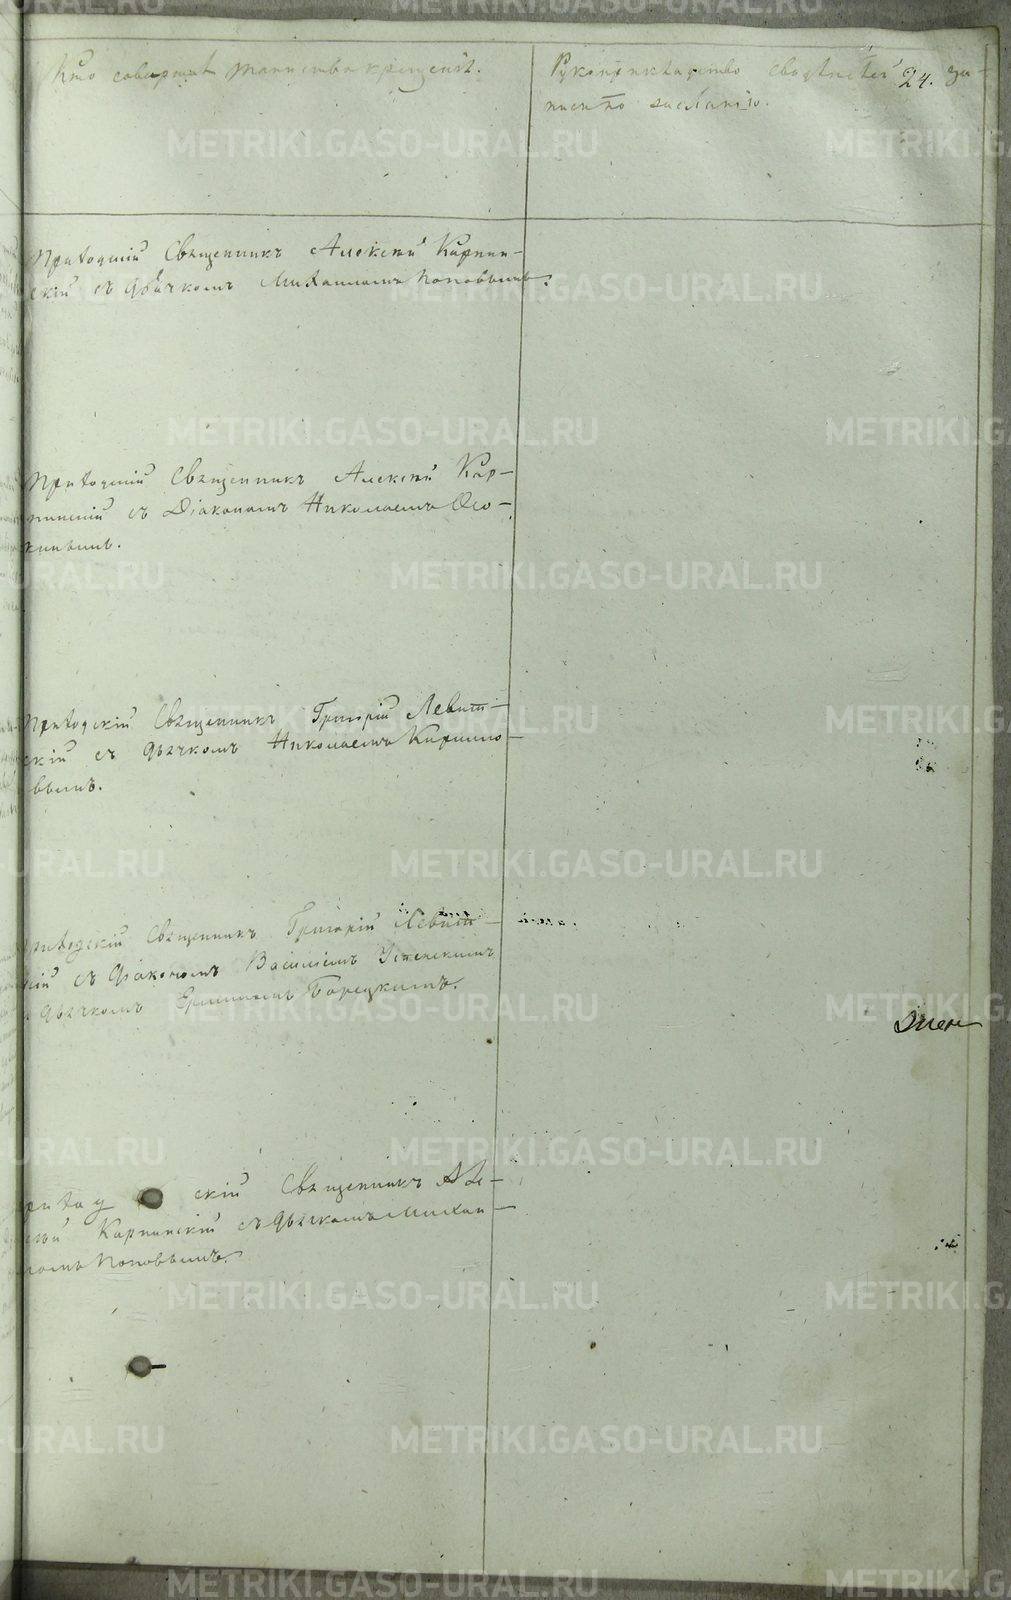 Кто совершалъ таинство крещенія.
Рукоприкладство свидѣтелей за-
писи по желанію.
24.
Приходскій Священникъ Алексѣй Карпин-
скій съ дьячкомъ Михаиломъ Поповымъ.
Приходскій Священникъ Алексѣй Кар-
пинскій съ Діакономъ Николаемъ Осо-
кинымъ.
Приходскій Священникъ Григорій Левит-
скій съ дьячкомъ Николаемъ Кирилло-
вымъ.
Приходскій Священникъ Григорій Левит-
скій съ Діакономъ Василіемъ Успенскимъ
и дьячкомъ
Приход скій Священникъ Але-
ксѣй Карпинскій съ дьячкомъ Михаи-
ломъ Поповымъ.
METRIKI.GASO-URAL.RU